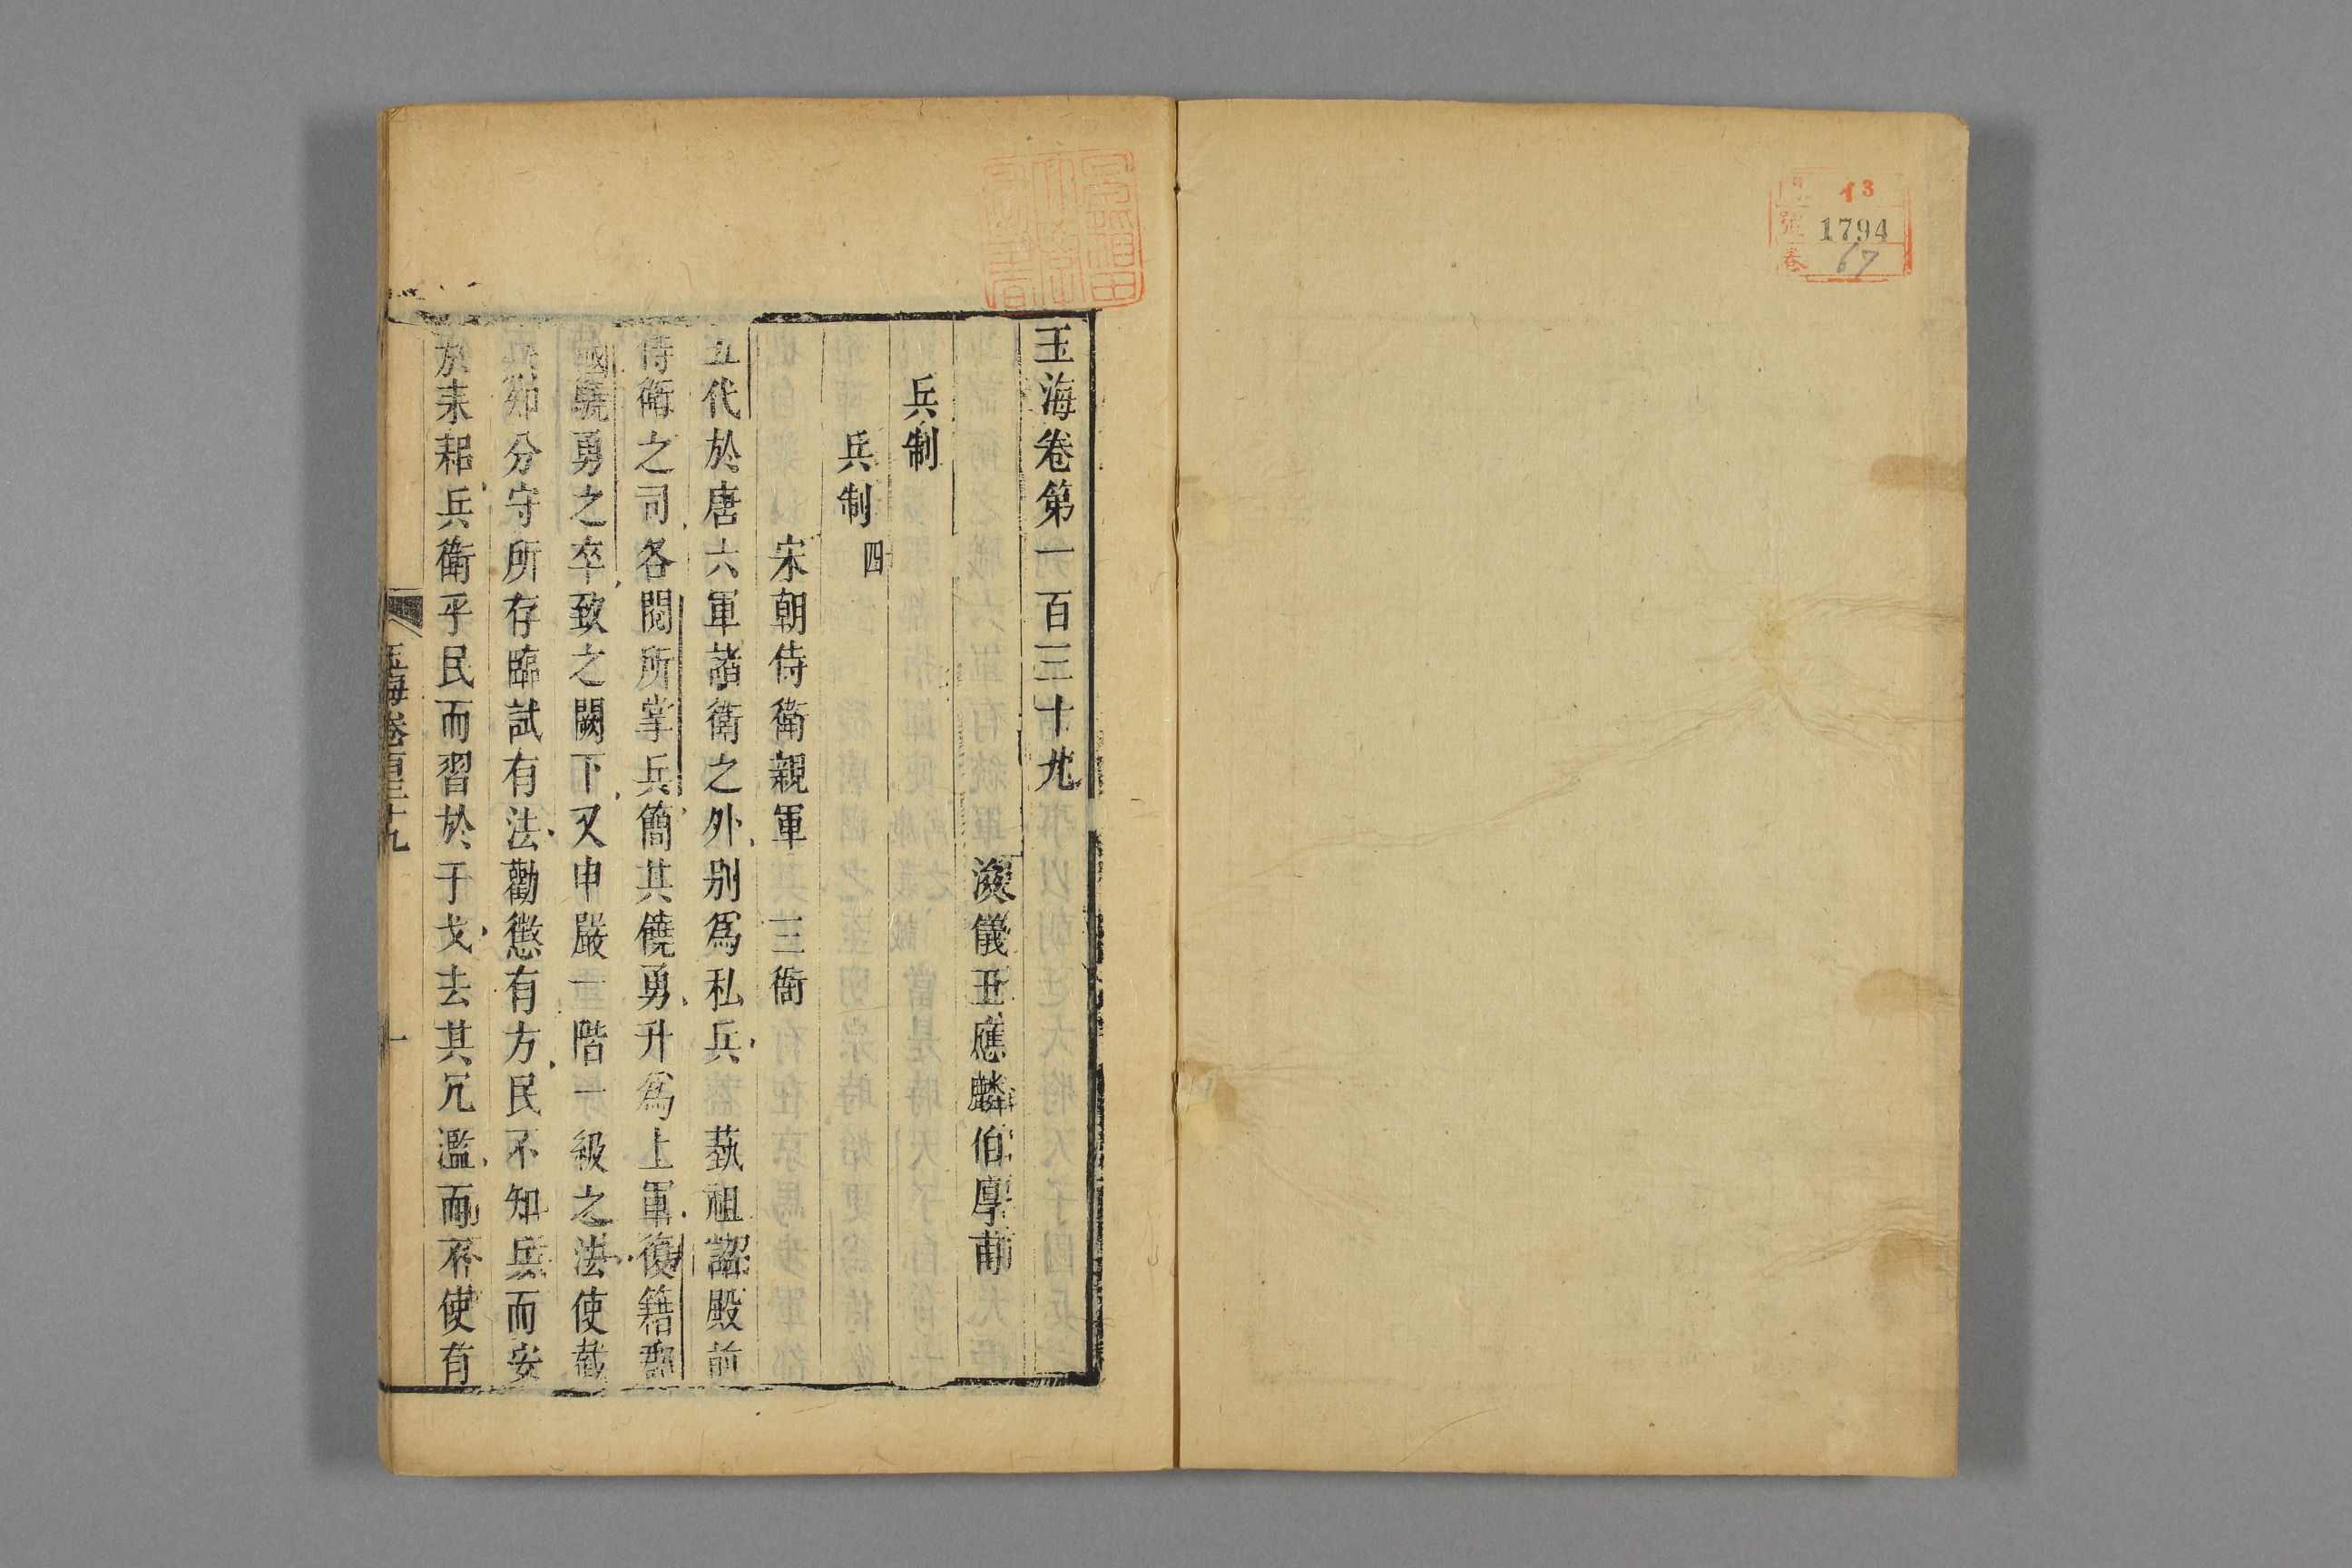 門 13
號 1794
卷 67
玉海卷第一百三十九
浚儀王應麟伯厚甫
兵制
兵制四
宋朝侍衛親軍 三衙
五代於唐六軍諸衛之外別爲私兵藝祖詔殿前
侍衛之司各閱所掌兵簡其驍勇升爲上軍復籍郡
國驍勇之卒致之闕下又申嚴一階一級之法使
卿分守所存臨試有法勸懲有方民不知兵而安
於耒耜兵衛乎民而習於干戈去其冗濫而不使有
玉海卷百三十九 一